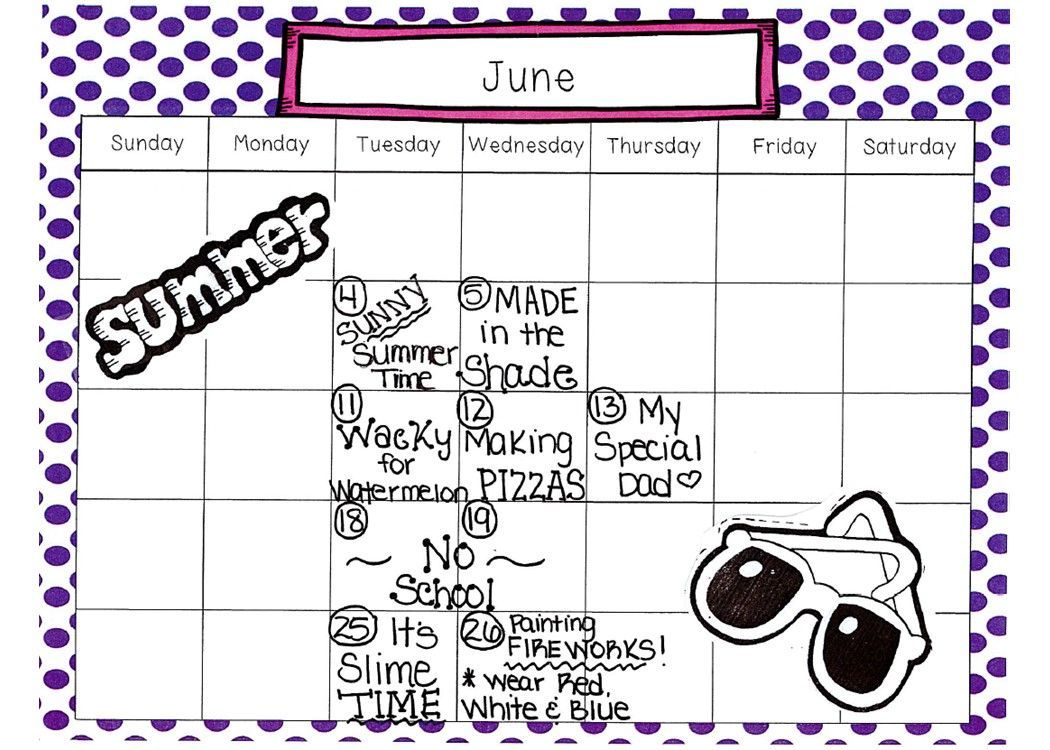 June
Sunday Monday Tuesday Wednesday Thursday Friday Saturday
Summer
4 SUNNY
Summer
Time
5 MADE
in the
Shade
11
Wacky
for
Watermelon
12
Making
PIZZAS
13 My
Special
Dad
18 19
~ No ~
School
25 It's
Slime
TIME
26 Painting
FIREWORKS!
* Wear Red,
White & Blue